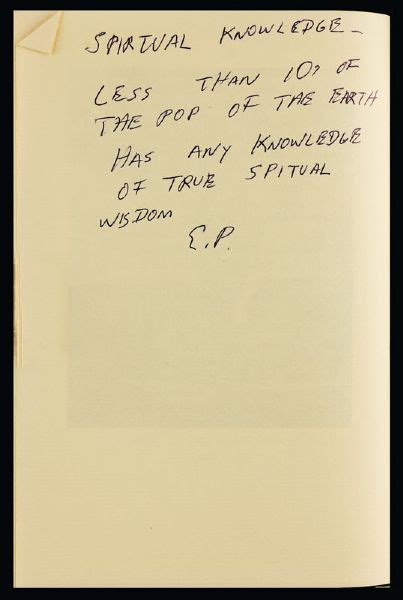 SPIRTUAL KNOWLEDGE -
LESS THAN 10% OF
THE POP OF THE EARTH
HAS ANY KNOWLEDGE
OF TRUE SPITUAL
WISDOM
E.P.